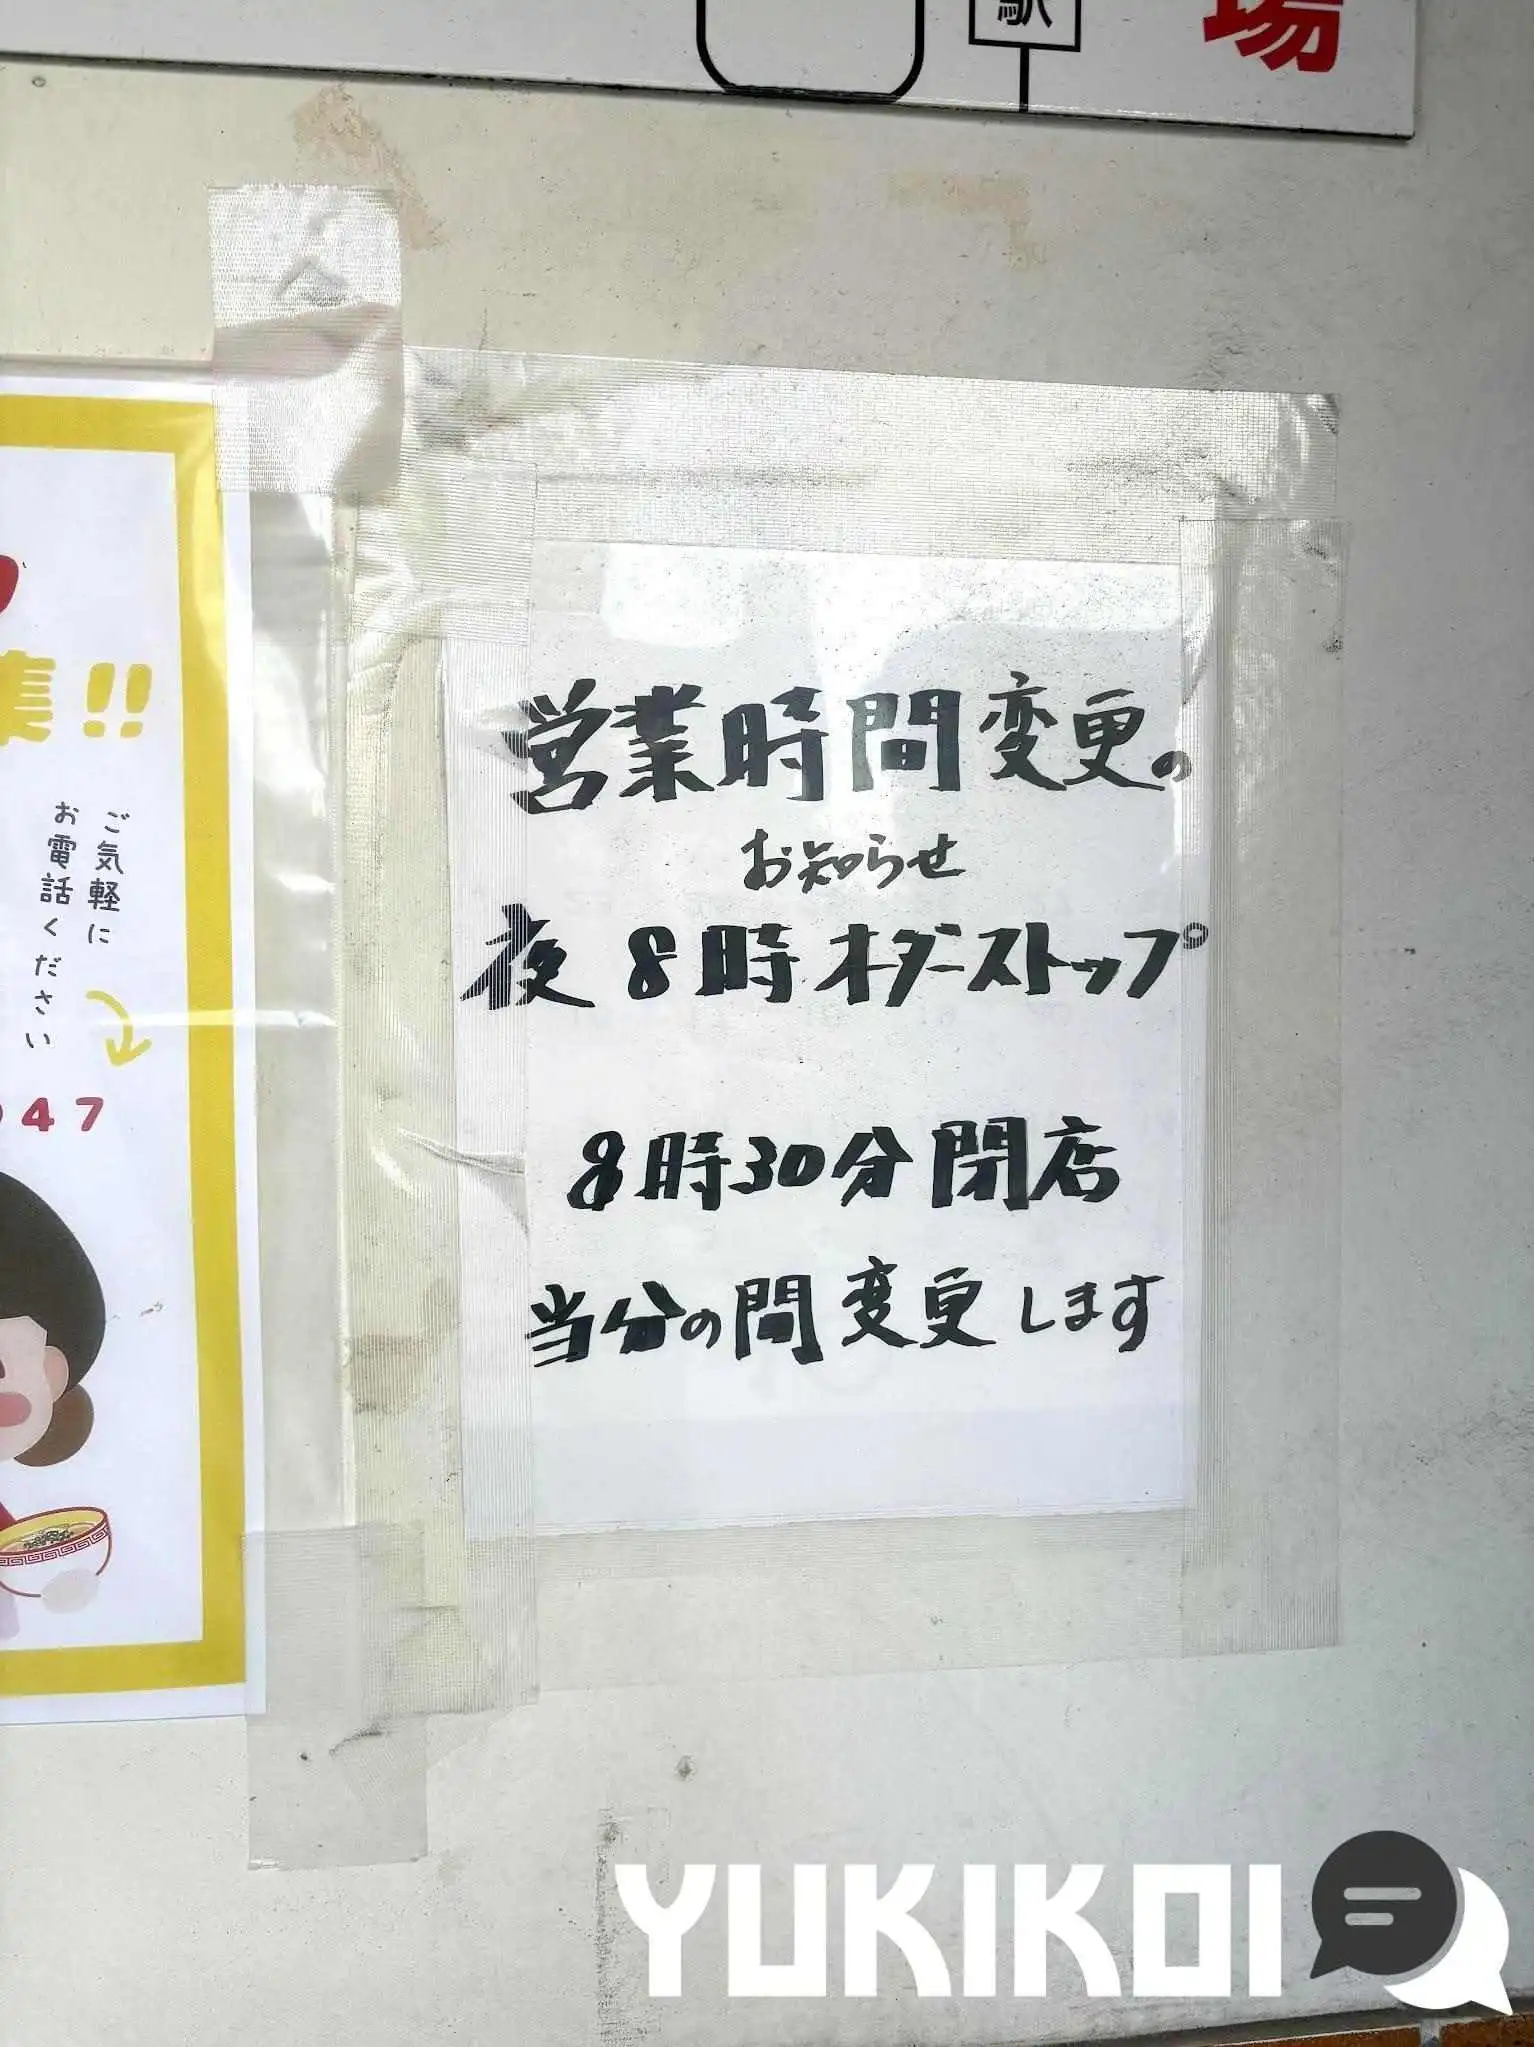 駅
場
集!!
ご気軽に
お電話ください
47
営業時間変更の
お知らせ
夜8時オーダーストップ
8時30分閉店
当分の間変更します
YUKIKOI